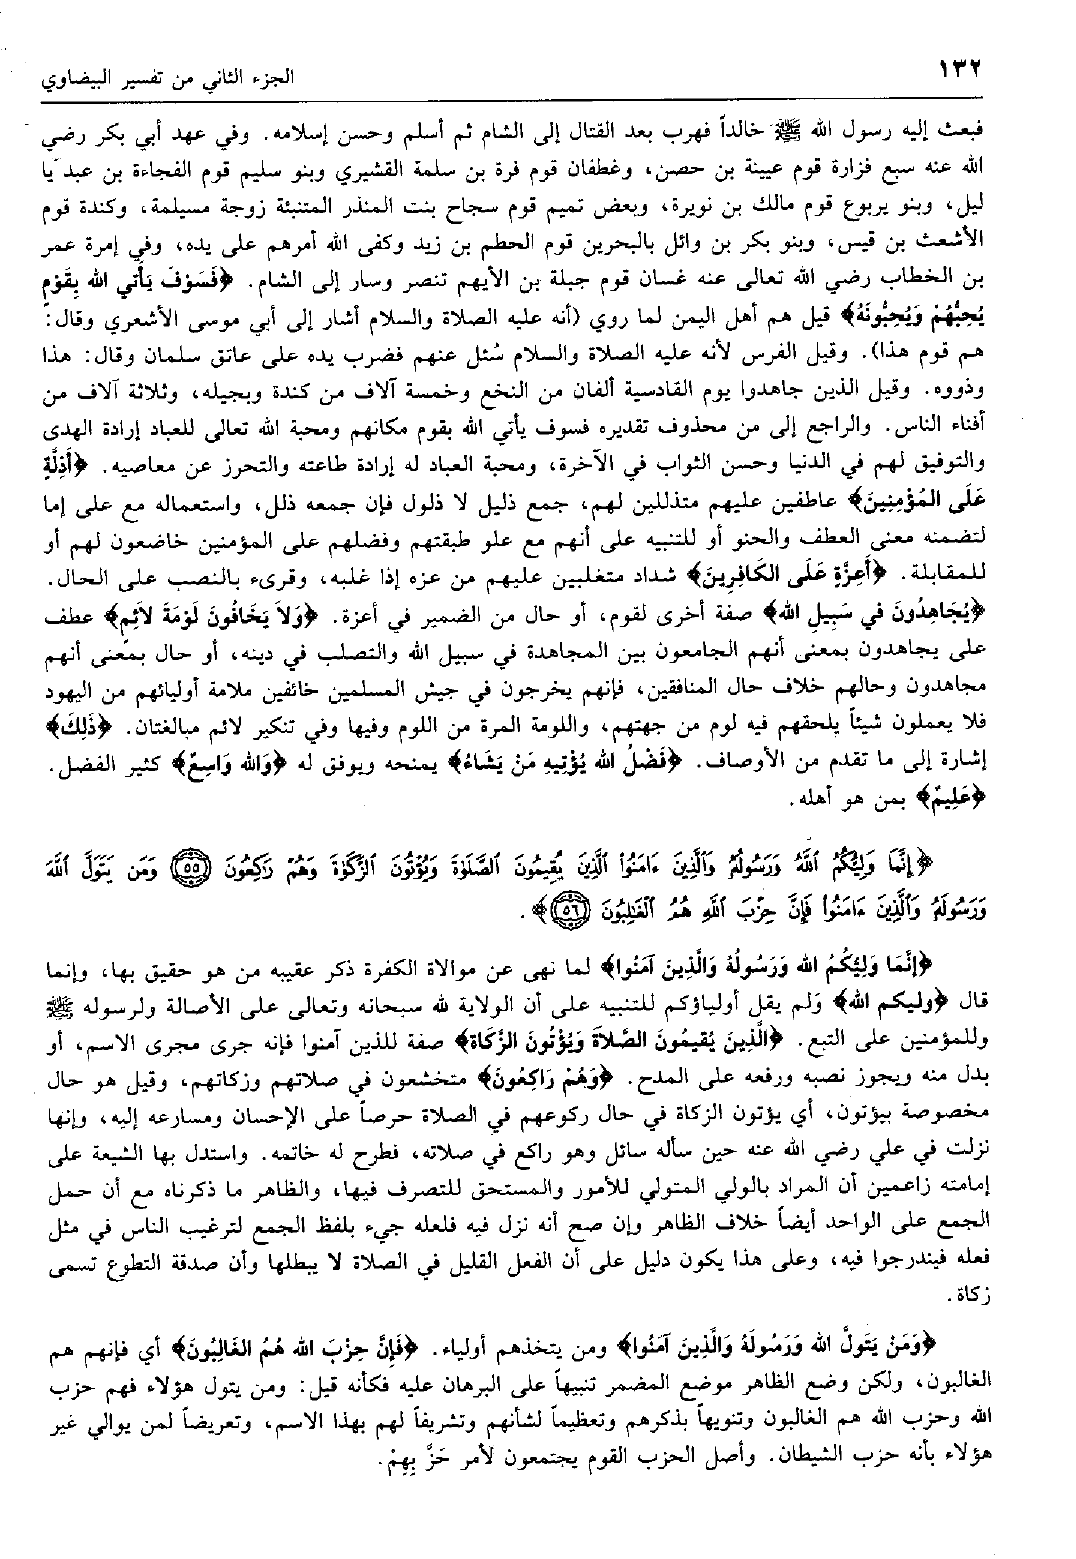 ١٣٢
الجزء الثاني من تفسير البيضاوي
فبعث إليه رسول الله ﷺ خالداً فهرب بعد القتال إلى الشام ثم أسلم وحسن إسلامه. وفي عهد أبي بكر رضي
الله عنه سبع فزارة قوم عيينة بن حصن، وغطفان قوم قرة بن سلمة القشيري وبنو سليم قوم الفجاءة بن عبد يا
ليل، وبنو يربوع قوم مالك بن نويرة، وبعض تميم قوم سجاح بنت المنذر المتنبئة زوجة مسيلمة، وكندة قوم
الأشعث بن قيس، وبنو بكر بن وائل بالبحرين قوم الحطم بن زيد وكفى الله أمرهم على يده، وفي إمرة عمر
بن الخطاب رضي الله تعالى عنه غسان قوم جبلة بن الأيهم تنصر وسار إلى الشام. ﴿فَسَوْفَ يَأْتِي الله بِقَوْمٍ
يُحِبُّهُمْ وَيُحِبُّونَهُ﴾ قيل هم أهل اليمن لما روي (أنه عليه الصلاة والسلام أشار إلى أبي موسى الأشعري وقال:
هم قوم هذا). وقيل الفرس لأنه عليه الصلاة والسلام سُئل عنهم فضرب يده على عاتق سلمان وقال: هذا
وذووه. وقيل الذين جاهدوا يوم القادسية ألفان من النخع وخمسة آلاف من كندة وبجيله، وثلاثة آلاف من
أفناء الناس. والراجع إلى من محذوف تقديره فسوف يأتي الله بقوم مكانهم ومحبة الله تعالى للعباد إرادة الهدى
والتوفيق لهم في الدنيا وحسن الثواب في الآخرة، ومحبة العباد له إرادة طاعته والتحرز عن معاصيه. ﴿أَذِلَّةٍ
عَلَى المُؤْمِنِينَ﴾ عاطفين عليهم متذللين لهم، جمع ذليل لا ذلول فإن جمعه ذلل، واستعماله مع على إما
لتضمنه معنى العطف والحنو أو للتنبيه على أنهم مع علو طبقتهم وفضلهم على المؤمنين خاضعون لهم أو
للمقابلة. ﴿أَعِزَّةٍ عَلَى الكَافِرِينَ﴾ شداد متغلبين عليهم من عزه إذا غلبه، وقرىء بالنصب على الحال.
﴿يُجَاهِدُونَ في سَبِيلِ الله﴾ صفة أخرى لقوم، أو حال من الضمير في أعزة. ﴿وَلاَ يَخَافُونَ لَوْمَةَ لاَئِمٍ﴾ عطف
على يجاهدون بمعنى أنهم الجامعون بين المجاهدة في سبيل الله والتصلب في دينه، أو حال بمعنى أنهم
مجاهدون وحالهم خلاف حال المنافقين، فإنهم يخرجون في جيش المسلمين خائفين ملامة أوليائهم من اليهود
فلا يعملون شيئاً يلحقهم فيه لوم من جهتهم، واللومة المرة من اللوم وفيها وفي تنكير لائم مبالغتان. ﴿ذَلِكَ﴾
إشارة إلى ما تقدم من الأوصاف. ﴿فَضْلُ الله يُؤْتِيهِ مَنْ يَشَاءُ﴾ يمنحه ويوفق له ﴿وَالله وَاسِعٌ﴾ كثير الفضل.
﴿عَلِيمٌ﴾ بمن هو أهله.
﴿إِنَّمَا وَلِيُّكُمُ ٱللَّهُ وَرَسُولُهُ وَٱلَّذِينَ ءَامَنُوا ٱلَّذِينَ يُقِيمُونَ ٱلصَّلَوٰةَ وَيُؤْتُونَ ٱلزَّكَوٰةَ وَهُمْ رَٰكِعُونَ ٥٥ وَمَن يَتَوَلَّ ٱللَّهَ
وَرَسُولَهُ وَٱلَّذِينَ ءَامَنُوا فَإِنَّ حِزْبَ ٱللَّهِ هُمُ ٱلْغَٰلِبُونَ ٥٦﴾.
﴿إِنَّمَا وَلِيُّكُمُ الله وَرَسُولُهُ وَالَّذِينَ آمَنُوا﴾ لما نهى عن موالاة الكفرة ذكر عقيبه من هو حقيق بها، وإنما
قال ﴿وليكم الله﴾ ولم يقل أولياؤكم للتنبيه على أن الولاية لله سبحانه وتعالى على الأصالة ولرسوله ﷺ
وللمؤمنين على التبع. ﴿الَّذِينَ يُقيمُونَ الصَّلاَةَ وَيُؤْتُونَ الزَّكَاة﴾ صفة للذين آمنوا فإنه جرى مجرى الاسم، أو
بدل منه ويجوز نصبه ورفعه على المدح. ﴿وَهُمْ رَاكِعُونَ﴾ متخشعون في صلاتهم وزكاتهم، وقيل هو حال
مخصوصة بيؤتون، أي يؤتون الزكاة في حال ركوعهم في الصلاة حرصاً على الإحسان ومسارعه إليه، وإنها
نزلت في علي رضي الله عنه حين سأله سائل وهو راكع في صلاته، فطرح له خاتمه. واستدل بها الشيعة على
إمامته زاعمين أن المراد بالولي المتولي للأمور والمستحق للتصرف فيها، والظاهر ما ذكرناه مع أن حمل
الجمع على الواحد أيضاً خلاف الظاهر وإن صح أنه نزل فيه فلعله جيء بلفظ الجمع لترغيب الناس في مثل
فعله فيندرجوا فيه، وعلى هذا يكون دليل على أن الفعل القليل في الصلاة لا يبطلها وأن صدقة التطوع تسمى
زكاة.
﴿وَمَنْ يَتَولَّ الله وَرَسُولَهُ وَالَّذِينَ آمَنُوا﴾ ومن يتخذهم أولياء. ﴿فَإِنَّ حِزْبَ الله هُمُ الغَالِبُونَ﴾ أي فإنهم هم
الغالبون، ولكن وضع الظاهر موضع المضمر تنبيهاً على البرهان عليه فكأنه قيل: ومن يتول هؤلاء فهم حزب
الله وحزب الله هم الغالبون وتنويهاً بذكرهم وتعظيماً لشأنهم وتشريفاً لهم بهذا الاسم، وتعريضاً لمن يوالي غير
هؤلاء بأنه حزب الشيطان. وأصل الحزب القوم يجتمعون لأمر حَزَّ بِهِمْ.